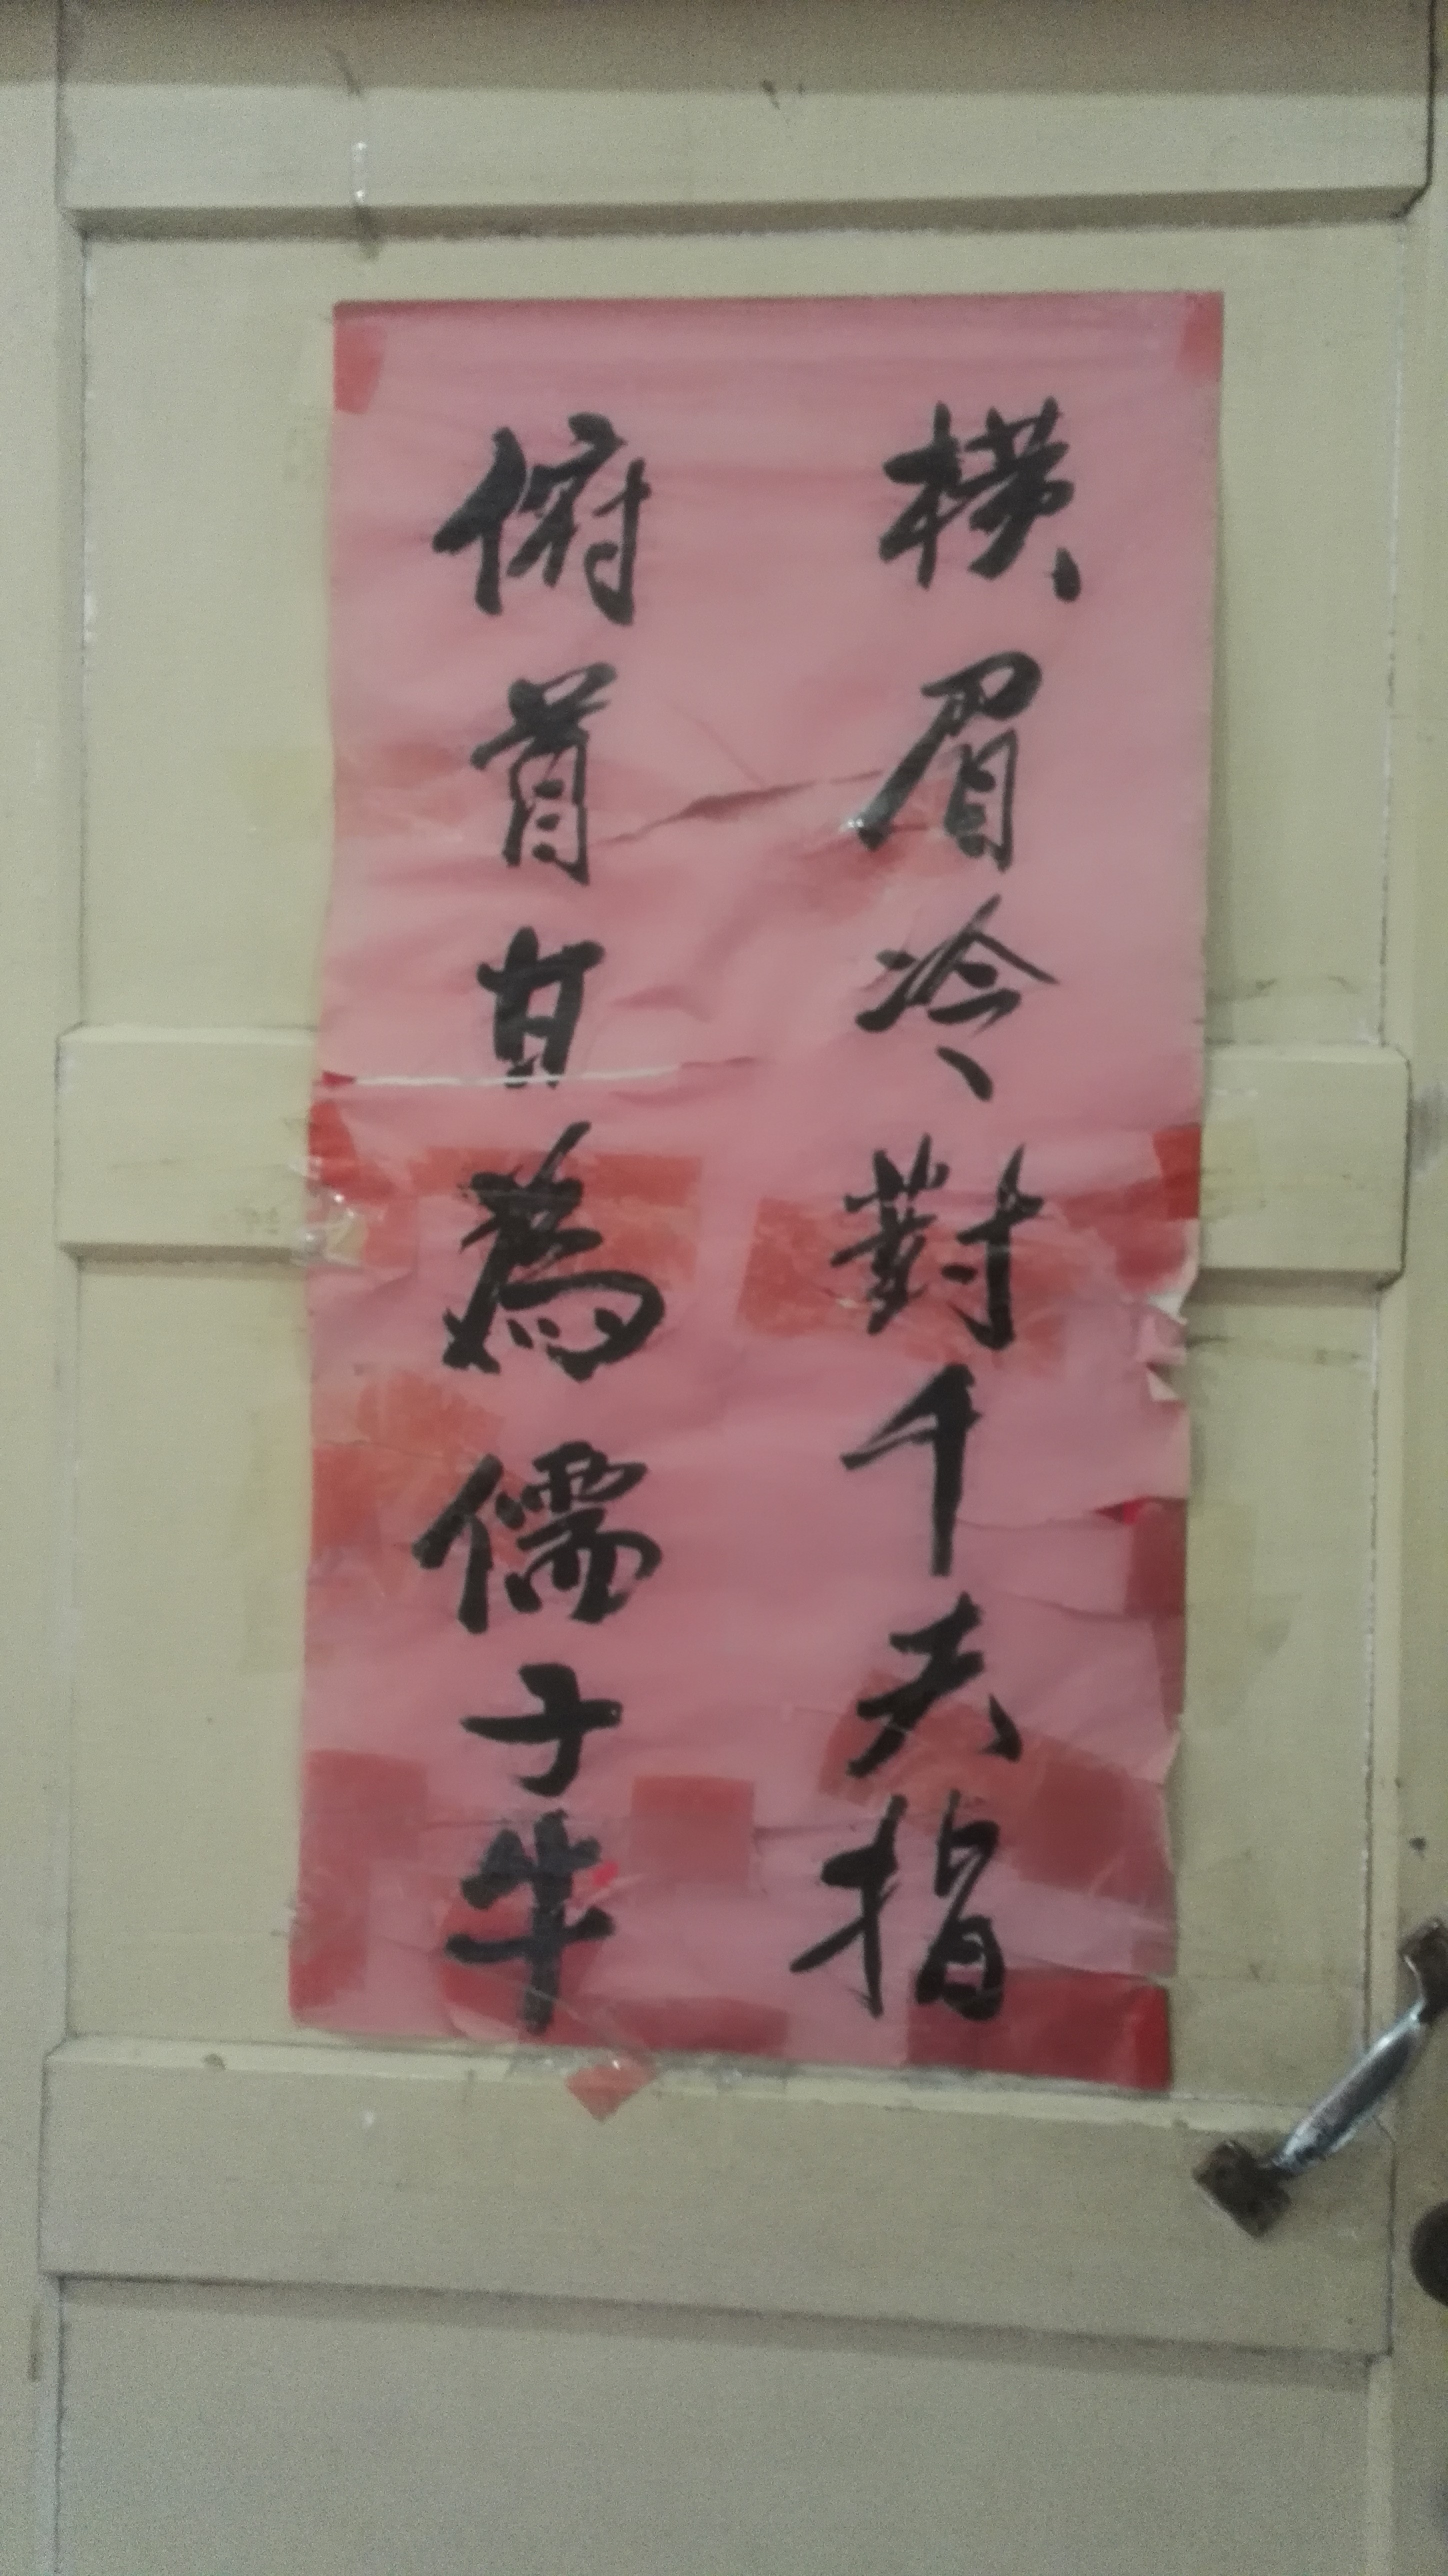 横眉冷對千夫指
俯首甘為儒子牛